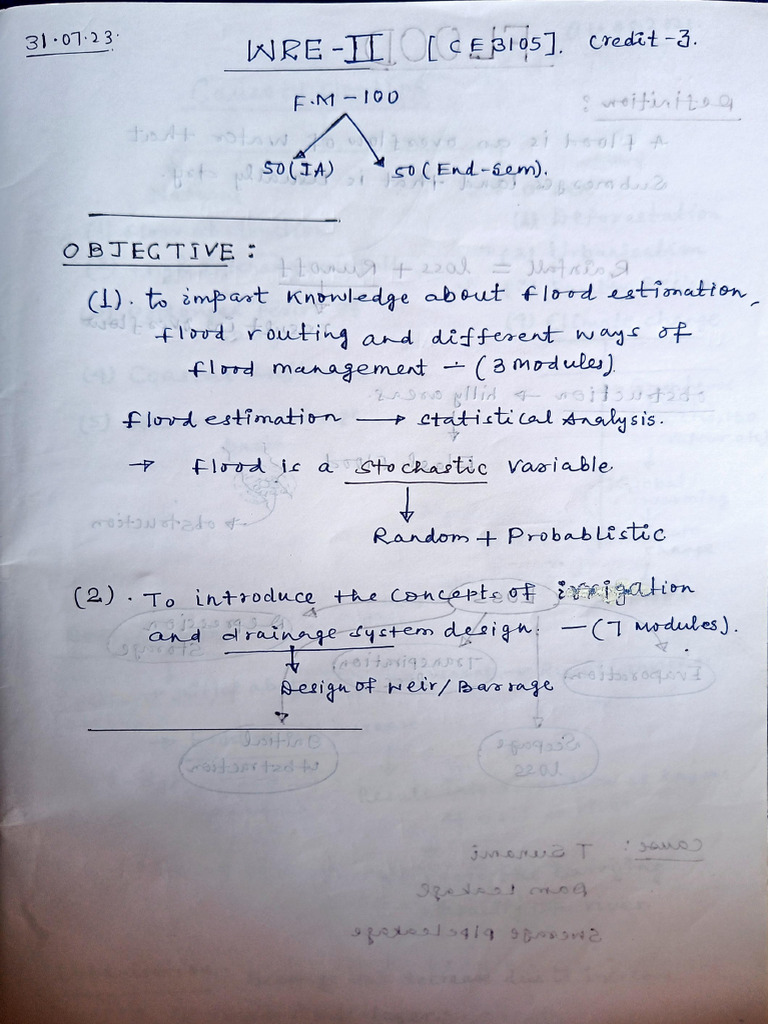 31.07.23.
WRE-II [CE3105]. Credit-3.
F.M-100
50(IA) 50(End-sem).
OBJECTIVE:
(1). to impart knowledge about flood estimation,
flood routing and different ways of
flood management - (3 modules).
flood estimation → statistical Analysis.
→ flood is a stochastic variable
Random + Probablistic
(2). To introduce the concepts of irrigation
and drainage system design. - (7 modules).
Design of weir/Barrage